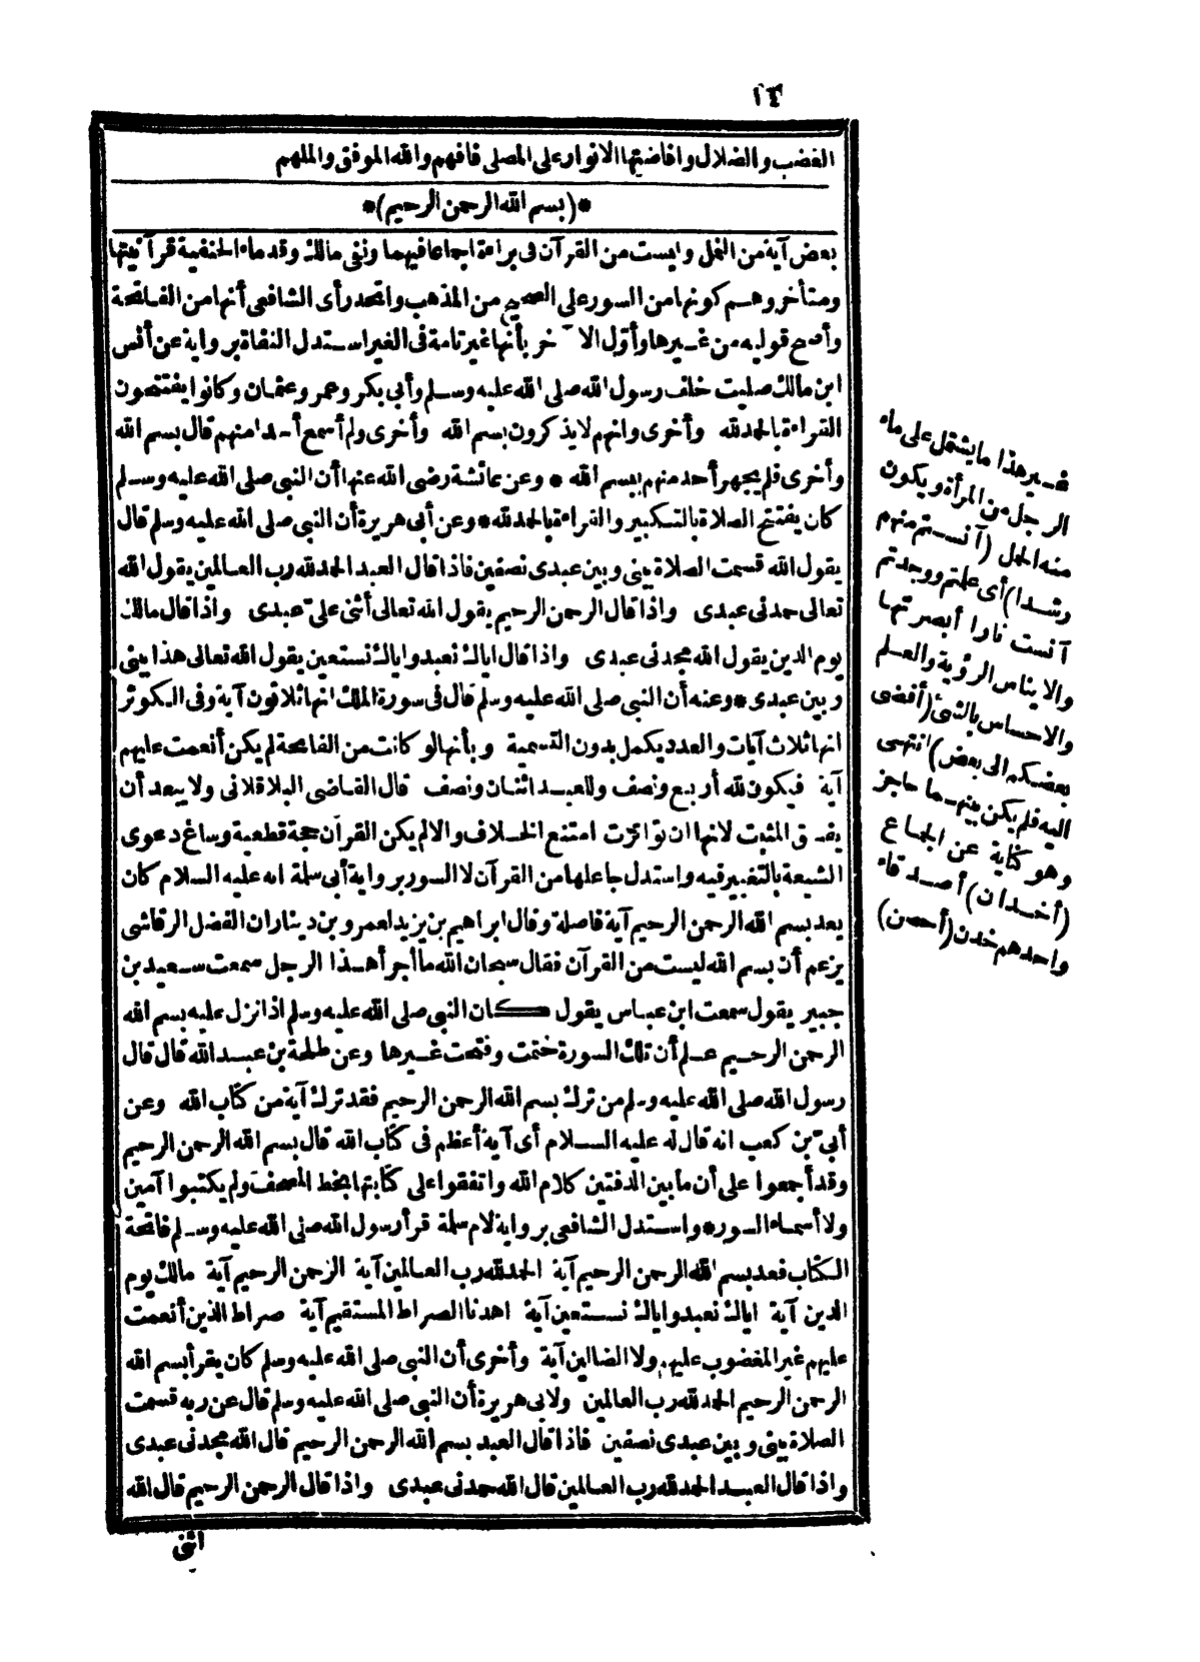 ١٤
الغضب والضلال وافاضتها الانوار على المصلى فافهم والله الموفق والملهم
*(بسم الله الرحمن الرحيم)*
بعض آية من النمل وليست من القرآن فى براءة اجماعا فيهما ونفى مالك وقدماء الحنفية قرآنيتها
ومتأخروهم كونها من السور على الصحيح من المذهب واتحد رأى الشافعى أنها من الفاتحة
وأصح قوليه من غيرها وأوّل الآخر بأنها غير تامة فى الغير استدل النفاة برواية عن أنس
ابن مالك صليت خلف رسول الله صلى الله عليه وسلم وأبى بكر وعمر وعثمان وكانوا يفتتحون
القراءة بالحمدلله وأخرى وانهم لا يذكرون بسم الله وأخرى ولم أسمع أحدا منهم قال بسم الله
وأخرى فلم يجهر أحد منهم ببسم الله * وعن عائشة رضى الله عنها أن النبى صلى الله عليه وسلم
كان يفتتح الصلاة بالتكبير والقراءة بالحمدلله * وعن أبى هريرة أن النبى صلى الله عليه وسلم قال
يقول الله قسمت الصلاة بينى وبين عبدى نصفين فاذا قال العبد الحمدلله رب العالمين يقول الله
تعالى حمدنى عبدى واذا قال الرحمن الرحيم يقول الله تعالى أثنى علىّ عبدى واذا قال مالك
يوم الدين يقول الله مجدنى عبدى واذا قال اياك نعبد واياك نستعين يقول الله تعالى هذا بينى
وبين عبدى * وعنه أن النبى صلى الله عليه وسلم قال فى سورة الملك انها ثلاثون آية وفى الكوثر
انها ثلاث آيات والعدد يكمل بدون التسمية وبأنها لو كانت من الفاتحة لم يكن أنعمت عليهم
آية فيكون لله أربع ونصف وللعبد اثنان ونصف قال القاضى الباقلانى ولا يبعد أن
يفسق المثبت لانها ان تواترت امتنع الخلاف والا لم يكن القرآن حجة قطعية وساغ دعوى
الشيعة بالتغيير فيه واستدل جاعلها من القرآن لا السور برواية أبى سلمة انه عليه السلام كان
يعد بسم الله الرحمن الرحيم آية فاصلة وقال ابراهيم بن يزيد لعمرو بن دينار ان الفضل الرقاشى
يزعم أن بسم الله ليست من القرآن فقال سبحان الله ما أجرأ هذا الرجل سمعت سعيد بن
جبير يقول سمعت ابن عباس يقول كان النبى صلى الله عليه وسلم اذا نزل عليه بسم الله
الرحمن الرحيم علم أن تلك السورة ختمت وفتحت غيرها وعن طلحة بن عبد الله قال قال
رسول الله صلى الله عليه وسلم من ترك بسم الله الرحمن الرحيم فقد ترك آية من كتاب الله وعن
أبىّ بن كعب انه قال له عليه السلام أى آية أعظم فى كتاب الله قال بسم الله الرحمن الرحيم
وقد أجمعوا على أن ما بين الدفتين كلام الله واتفقوا على كتابتها بخط المصحف ولم يكتبوا آمين
ولا أسماء السور * واستدل الشافعى برواية لام سلمة قرأ رسول الله صلى الله عليه وسلم فاتحة
الكتاب فعد بسم الله الرحمن الرحيم آية الحمدلله رب العالمين آية الرحمن الرحيم آية مالك يوم
الدين آية اياك نعبد واياك نستعين آية اهدنا الصراط المستقيم آية صراط الذين أنعمت
عليهم غير المغضوب عليهم ولا الضالين آية وأخرى أن النبى صلى الله عليه وسلم كان يقرأ بسم الله
الرحمن الرحيم الحمدلله رب العالمين ولابى هريرة أن النبى صلى الله عليه وسلم قال عن ربه قسمت
الصلاة بينى وبين عبدى نصفين فاذا قال العبد بسم الله الرحمن الرحيم قال الله مجدنى عبدى
واذا قال العبد الحمدلله رب العالمين قال الله حمدنى عبدى واذا قال الرحمن الرحيم قال الله
اثنى
غير هذا ما يشتمل على ماء
الرجل من المرأة ويكون
منه الحمل (آنستم منهم
رشدا) أى علمتم ووجدتم
آنست نارا أبصرتها
والايناس الرؤية والعلم
والاحساس بالشئ (أفضى
بعضكم الى بعض) انتهى
اليه فلم يكن بينهما حاجز
وهو كناية عن الجماع
(أخدان) أصدقاء
واحدهم خدن (أحصن)